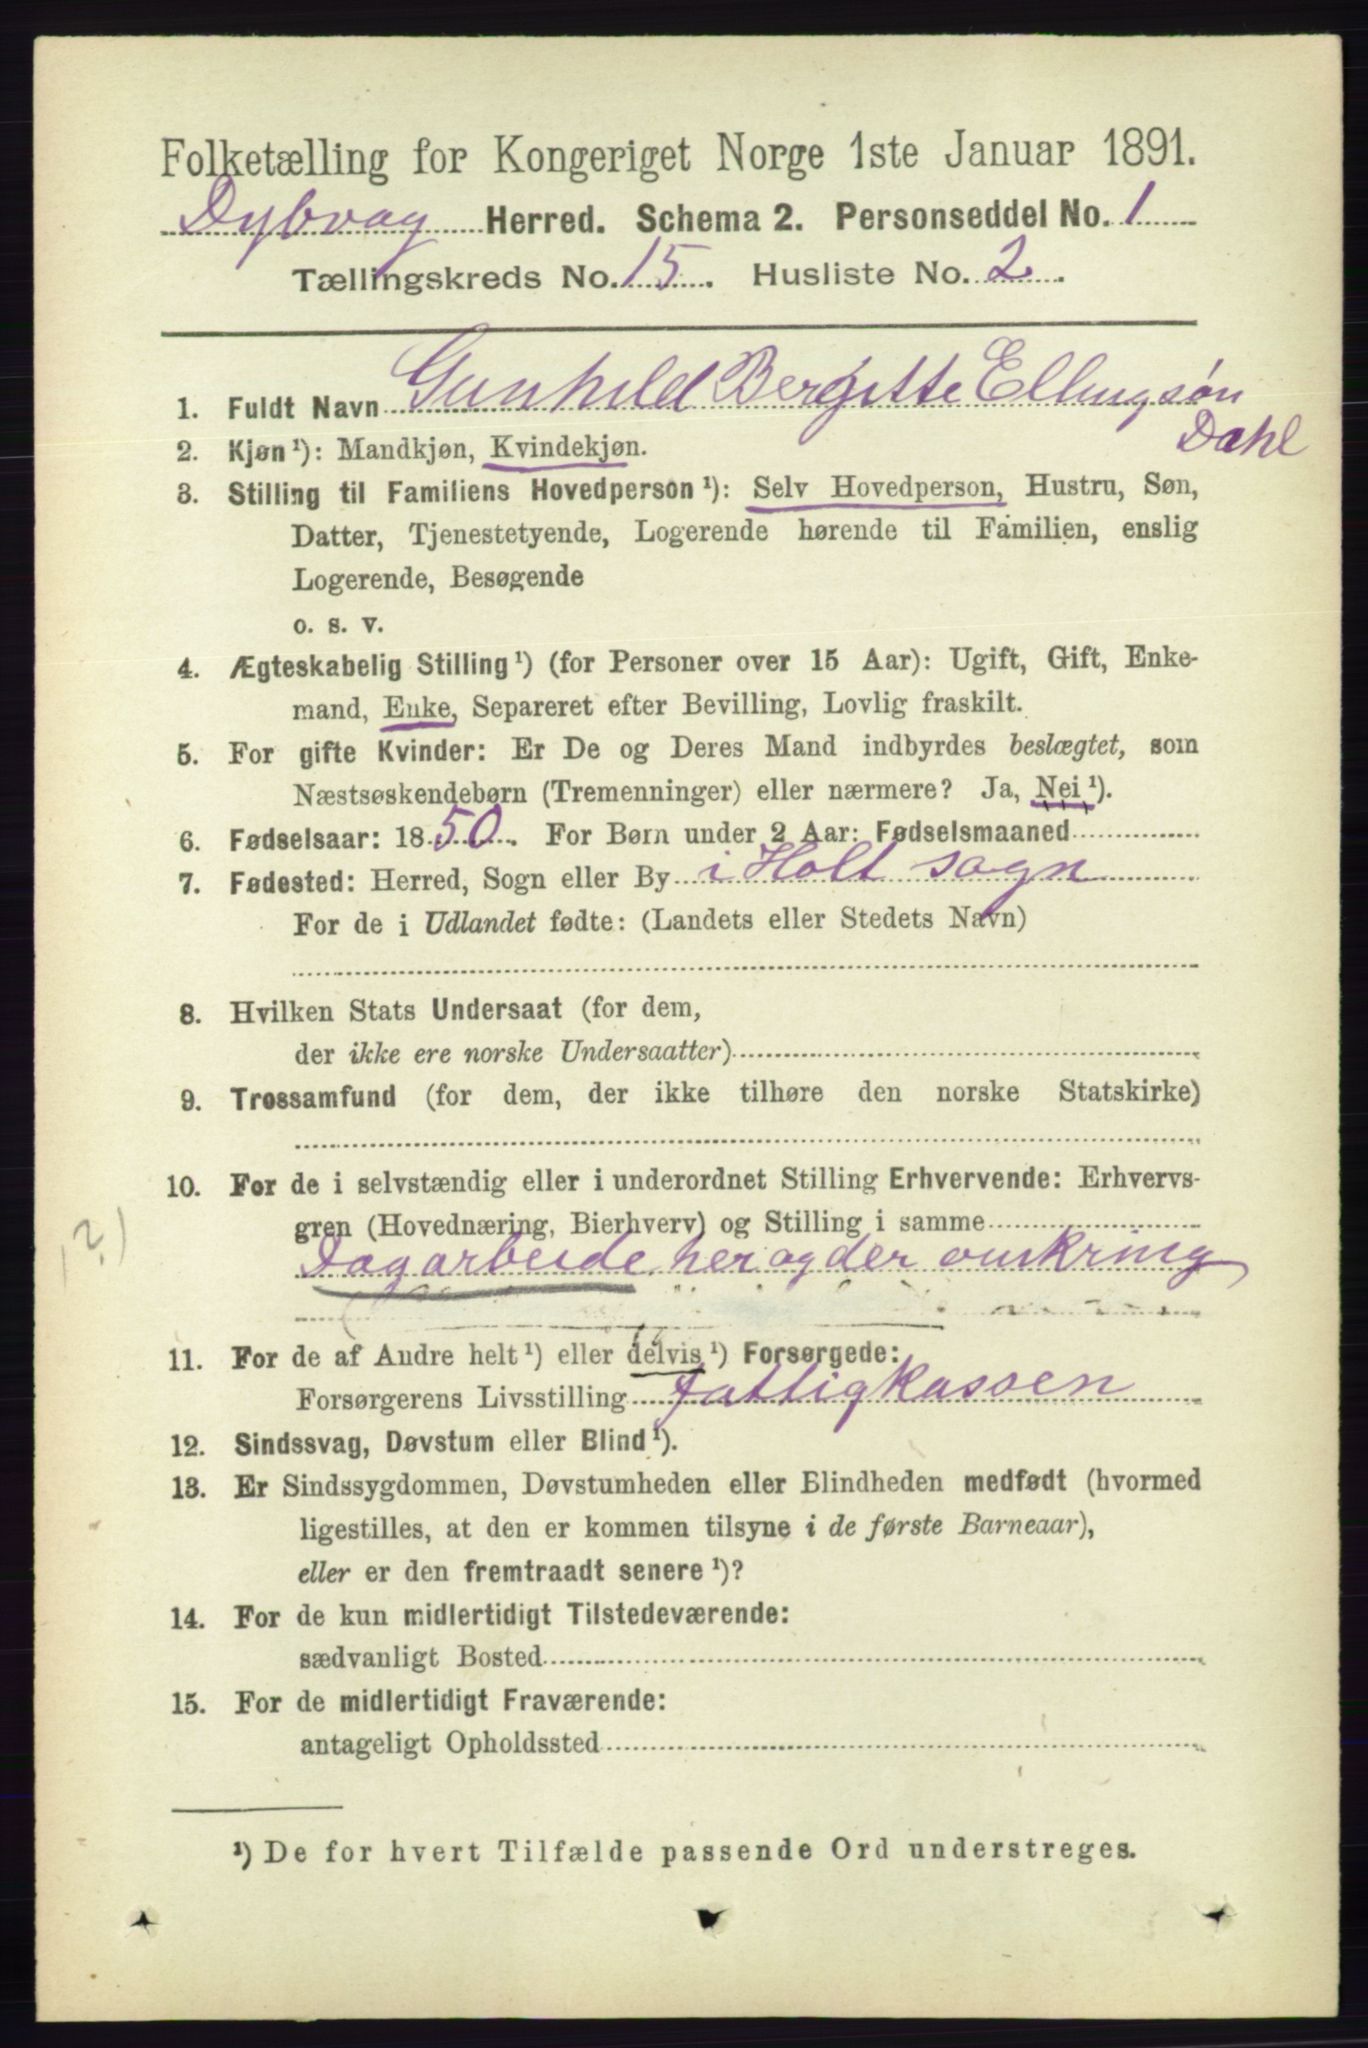 Folketælling for Kongeriget Norge 1ste Januar 1891.
Dybvag Herred. Schema 2. Personseddel No. 1
Tællingskreds No. 15. Husliste No. 2.
1. Fuldt Navn Gunhild Bergitte Ellingsøn
Dahl
2. Kjøn ¹): Mandkjøn, Kvindekjøn.
3. Stilling til Familiens Hovedperson ¹): Selv Hovedperson, Hustru, Søn,
Datter, Tjenestetyende, Logerende hørende til Familien, enslig
Logerende, Besøgende
o. s. v.
4. Ægteskabelig Stilling ¹) (for Personer over 15 Aar): Ugift, Gift, Enke-
mand, Enke, Separeret efter Bevilling, Lovlig fraskilt.
5. For gifte Kvinder: Er De og Deres Mand indbyrdes beslægtet, som
Næstsøskendebørn (Tremenninger) eller nærmere? Ja, Nei ¹).
6. Fødselsaar: 1850. For Børn under 2 Aar: Fødselsmaaned
7. Fødested: Herred, Sogn eller By i Holt sogn
For de i Udlandet fødte: (Landets eller Stedets Navn)
8. Hvilken Stats Undersaat (for dem,
der ikke ere norske Undersaatter)
9. Trossamfund (for dem, der ikke tilhøre den norske Statskirke)
10. For de i selvstændig eller i underordnet Stilling Erhvervende: Erhvervs-
gren (Hovednæring, Bierhverv) og Stilling i samme
Dagarbeide her og der omkring
11. For de af Andre helt ¹) eller delvis ¹) Forsørgede:
Forsørgerens Livsstilling fattigkassen
12. Sindssvag, Døvstum eller Blind ¹).
13. Er Sindssygdommen, Døvstumheden eller Blindheden medfødt (hvormed
ligestilles, at den er kommen tilsyne i de første Barneaar),
eller er den fremtraadt senere ¹)?
14. For de kun midlertidigt Tilstedeværende:
sædvanligt Bosted
15. For de midlertidigt Fraværende:
antageligt Opholdssted
¹) De for hvert Tilfælde passende Ord understreges.